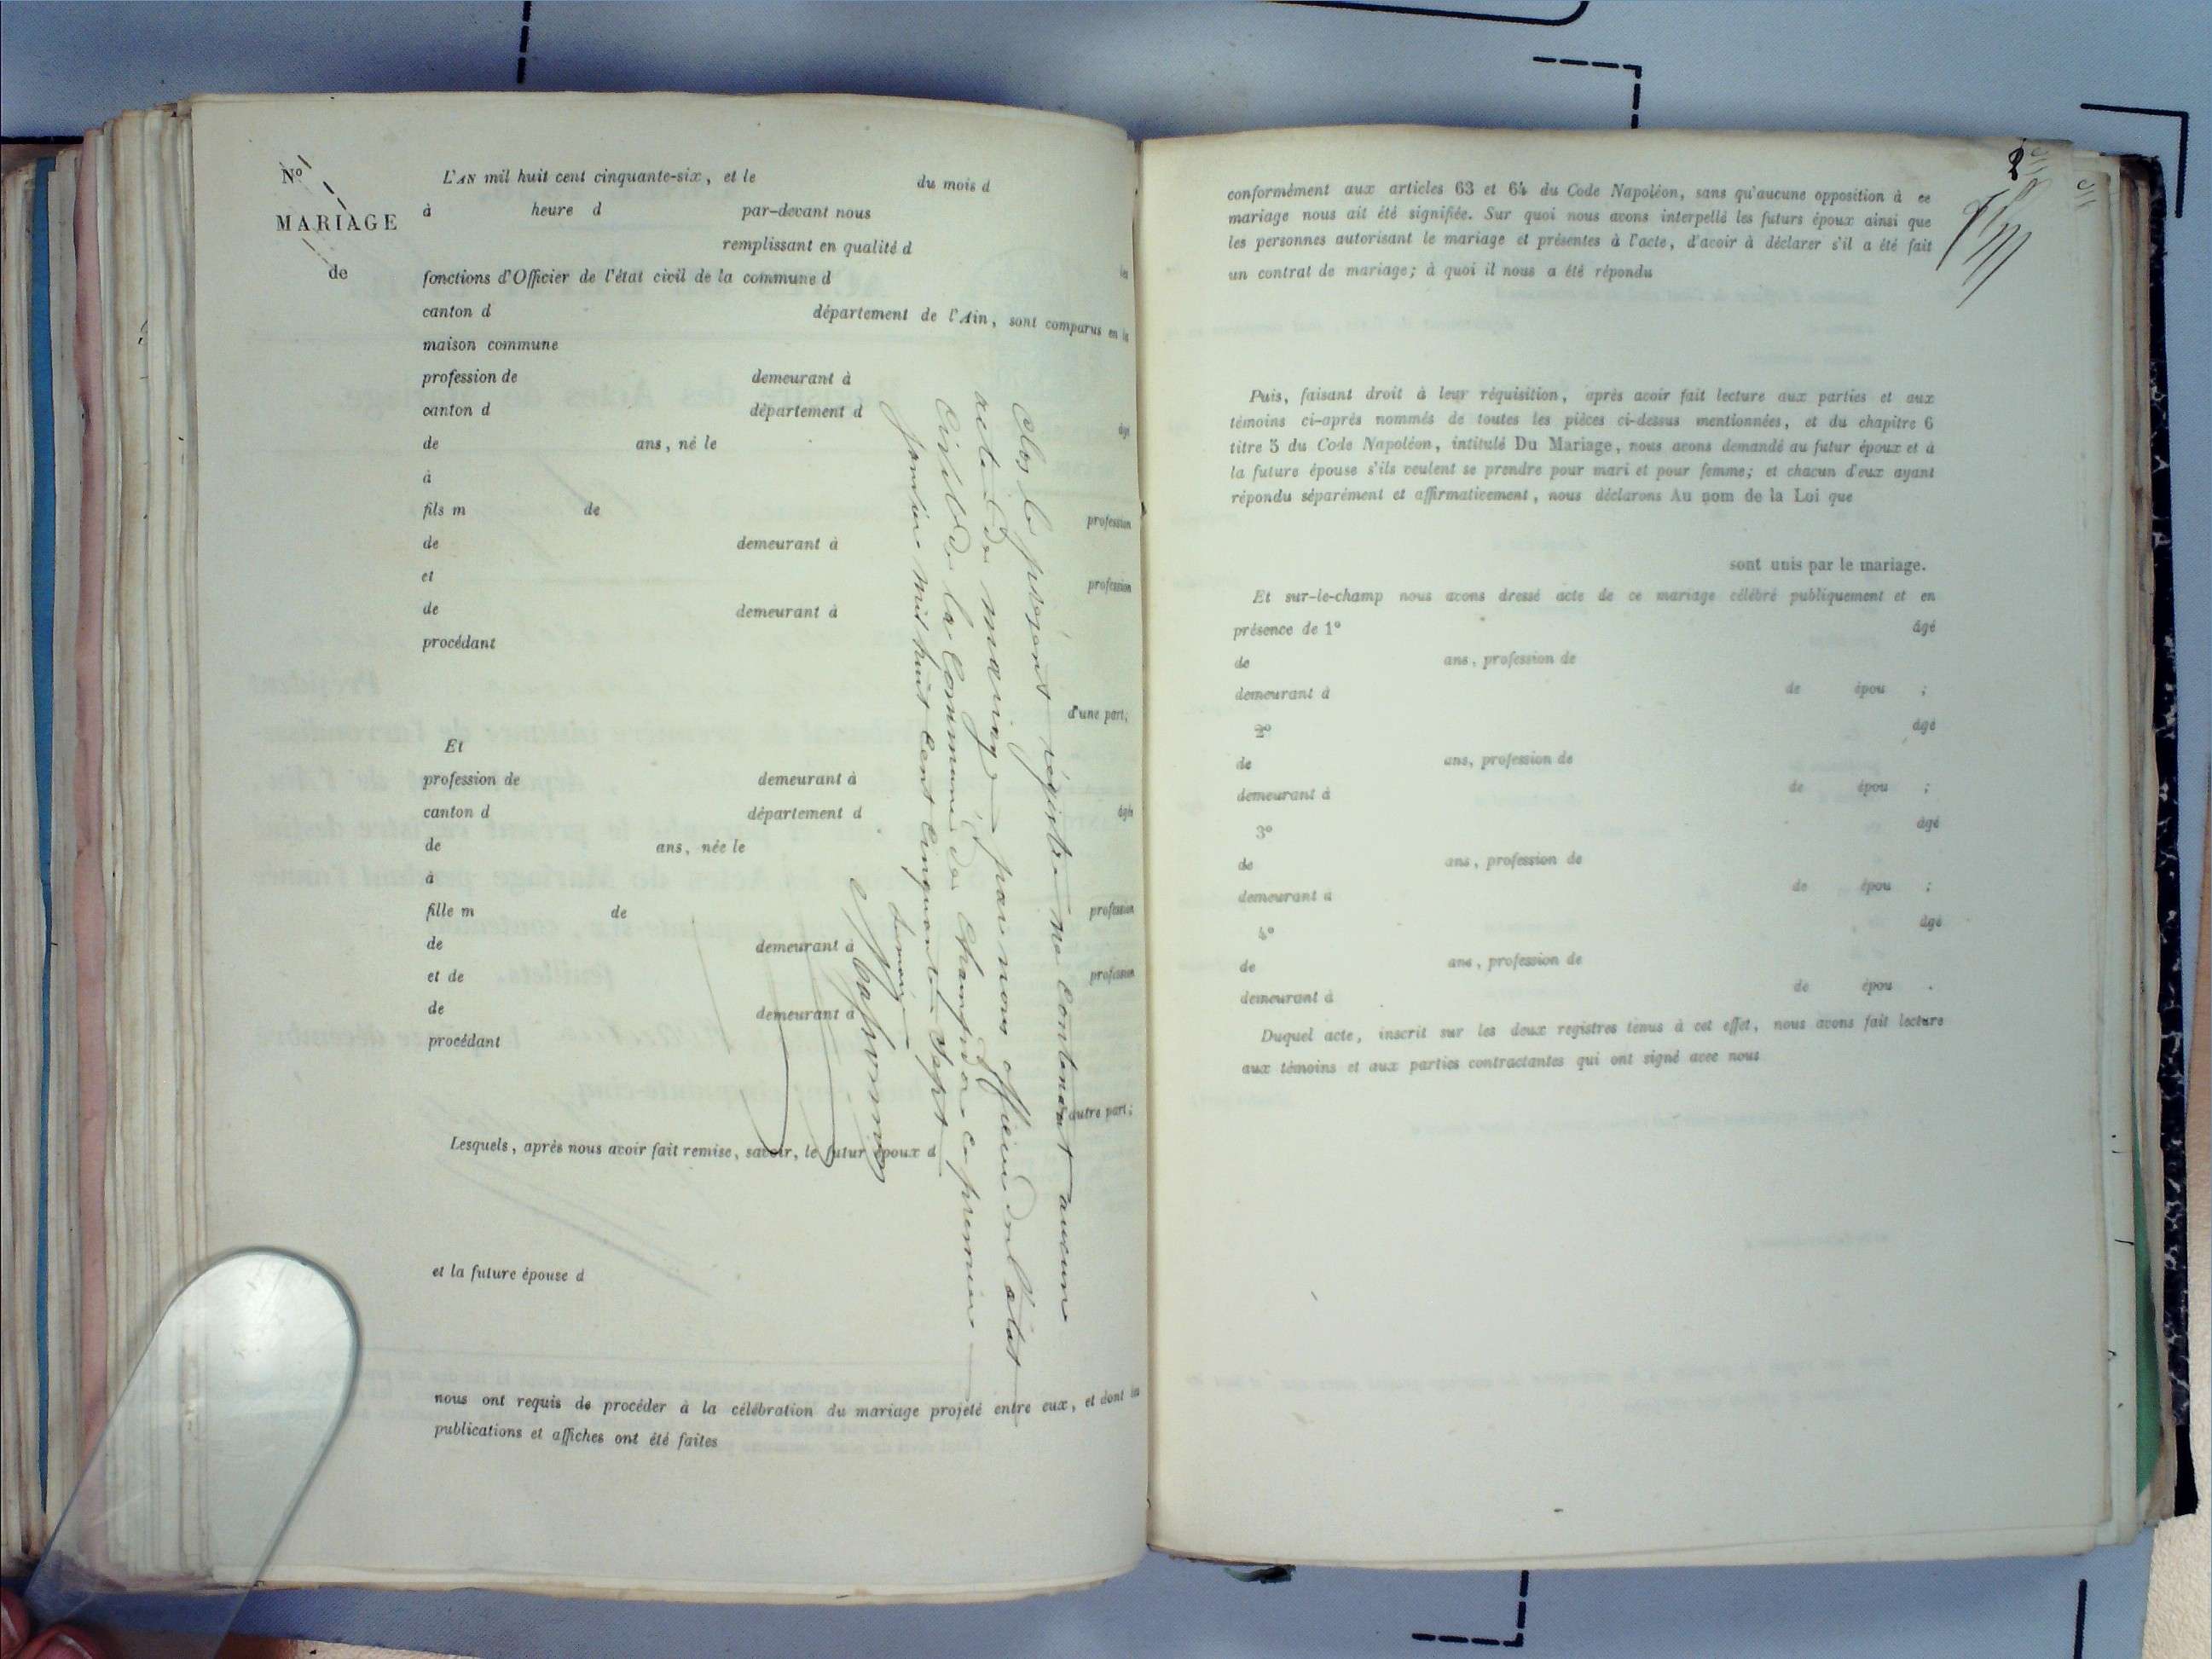 No
MARIAGE
de
L'AN mil huit cent cinquante-six, et le du mois d
à heure d par-devant nous
remplissant en qualité d
les
fonctions d'Officier de l'état civil de la commune d
canton d département de l'Ain, sont comparus en la
maison commune
profession de demeurant à
canton d département d âgé
de ans, né le
à
fils m de profession
de demeurant à
et profession
de demeurant à
procédant
d'une part;
Et
profession de demeurant à
canton d département d âgée
de ans, née le
à
fille m de profession
de demeurant à
et de profession
de demeurant à
procédant
d'autre part;
Lesquels, après nous avoir fait remise, savoir, le futur époux d
et la future épouse d
nous ont requis de procéder à la célébration du mariage projeté entre eux, et dont les
publications et affiches ont été faites
Clos le présent régistre ne contenant aucun
acte de mariage, par nous officier de l'état
Civil de la Commune de Champdor ce premier
janvier mil huit cent cinquante Sept
2
conformément aux articles 63 et 64 du Code Napoléon, sans qu'aucune opposition à ce
mariage nous ait été signifiée. Sur quoi nous avons interpellé les futurs époux ainsi que
les personnes autorisant le mariage et présentes à l'acte, d'avoir à déclarer s'il a été fait
un contrat de mariage; à quoi il nous a été répondu
Puis, faisant droit à leur réquisition, après avoir fait lecture aux parties et aux
témoins ci-après nommés de toutes les pièces ci-dessus mentionnées, et du chapitre 6
titre 5 du Code Napoléon, intitulé Du Mariage, nous avons demandé au futur époux et à
la future épouse s'ils veulent se prendre pour mari et pour femme; et chacun d'eux ayant
répondu séparément et affirmativement, nous déclarons Au nom de la Loi que
sont unis par le mariage.
Et sur-le-champ nous avons dressé acte de ce mariage célébré publiquement et en
présence de 1° âgé
de ans, profession de
demeurant à de épou ;
2° âgé
de ans, profession de
demeurant à de épou ;
3° âgé
de ans, profession de
demeurant à de épou ;
4° âgé
de ans, profession de
demeurant à de épou .
Duquel acte, inscrit sur les deux registres tenus à cet effet, nous avons fait lecture
aux témoins et aux parties contractantes qui ont signé avec nous